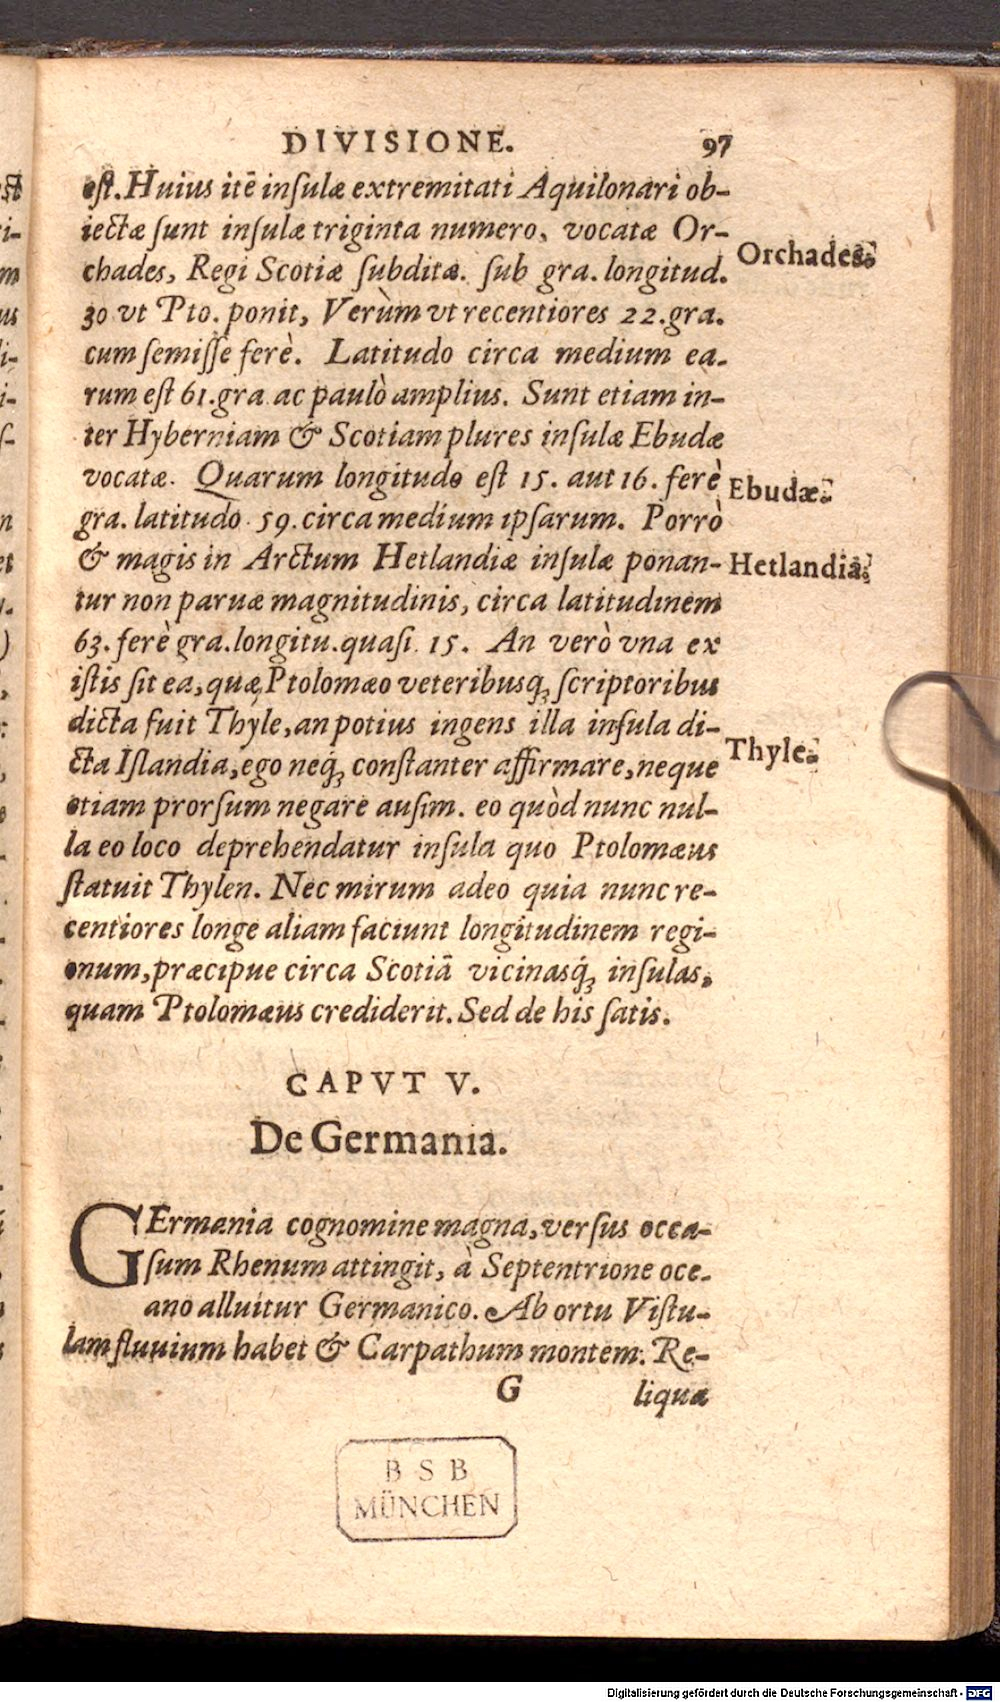 DIVISIONE. 97
est. Huius itē insulæ extremitati Aquilonari ob-
iectæ sunt insulæ triginta numero, vocatæ Or-
chades, Regi Scotiæ subditæ. sub gra. longitud.
Orchades.
30 vt Pto. ponit, Verùm vt recentiores 22. gra.
cum semisse ferè. Latitudo circa medium ea-
rum est 61. gra. ac paulò amplius. Sunt etiam in-
ter Hyberniam & Scotiam plures insulæ Ebudæ
vocatæ. Quarum longitudo est 15. aut 16. ferè
Ebudæ.
gra. latitudo. 59. circa medium ipsarum. Porrò
& magis in Arctum Hetlandiæ insulæ ponan-
Hetlandia.
tur non paruæ magnitudinis, circa latitudinem
63. ferè gra. longitu. quasi 15. An verò vna ex
istis sit ea, quæ Ptolomæo veteribusq; scriptoribus
dicta fuit Thyle, an potius ingens illa insula di-
Thyle.
cta Islandia, ego neq; constanter affirmare, neque
etiam prorsum negare ausim. eo quòd nunc nul-
la eo loco deprehendatur insula quo Ptolomæus
statuit Thylen. Nec mirum adeo quia nunc re-
centiores longe aliam faciunt longitudinem regi-
onum, præcipue circa Scotiā vicinasq; insulas,
quam Ptolomæus crediderit. Sed de his satis.
CAPVT V.
De Germania.
GErmania cognomine magna, versus occa-
sum Rhenum attingit, à Septentrione oce-
ano alluitur Germanico. Ab ortu Vistu-
lam fluuium habet & Carpathum montem: Re-
G liqua
BSB
MÜNCHEN
Digitalisierung gefördert durch die Deutsche Forschungsgemeinschaft - DFG